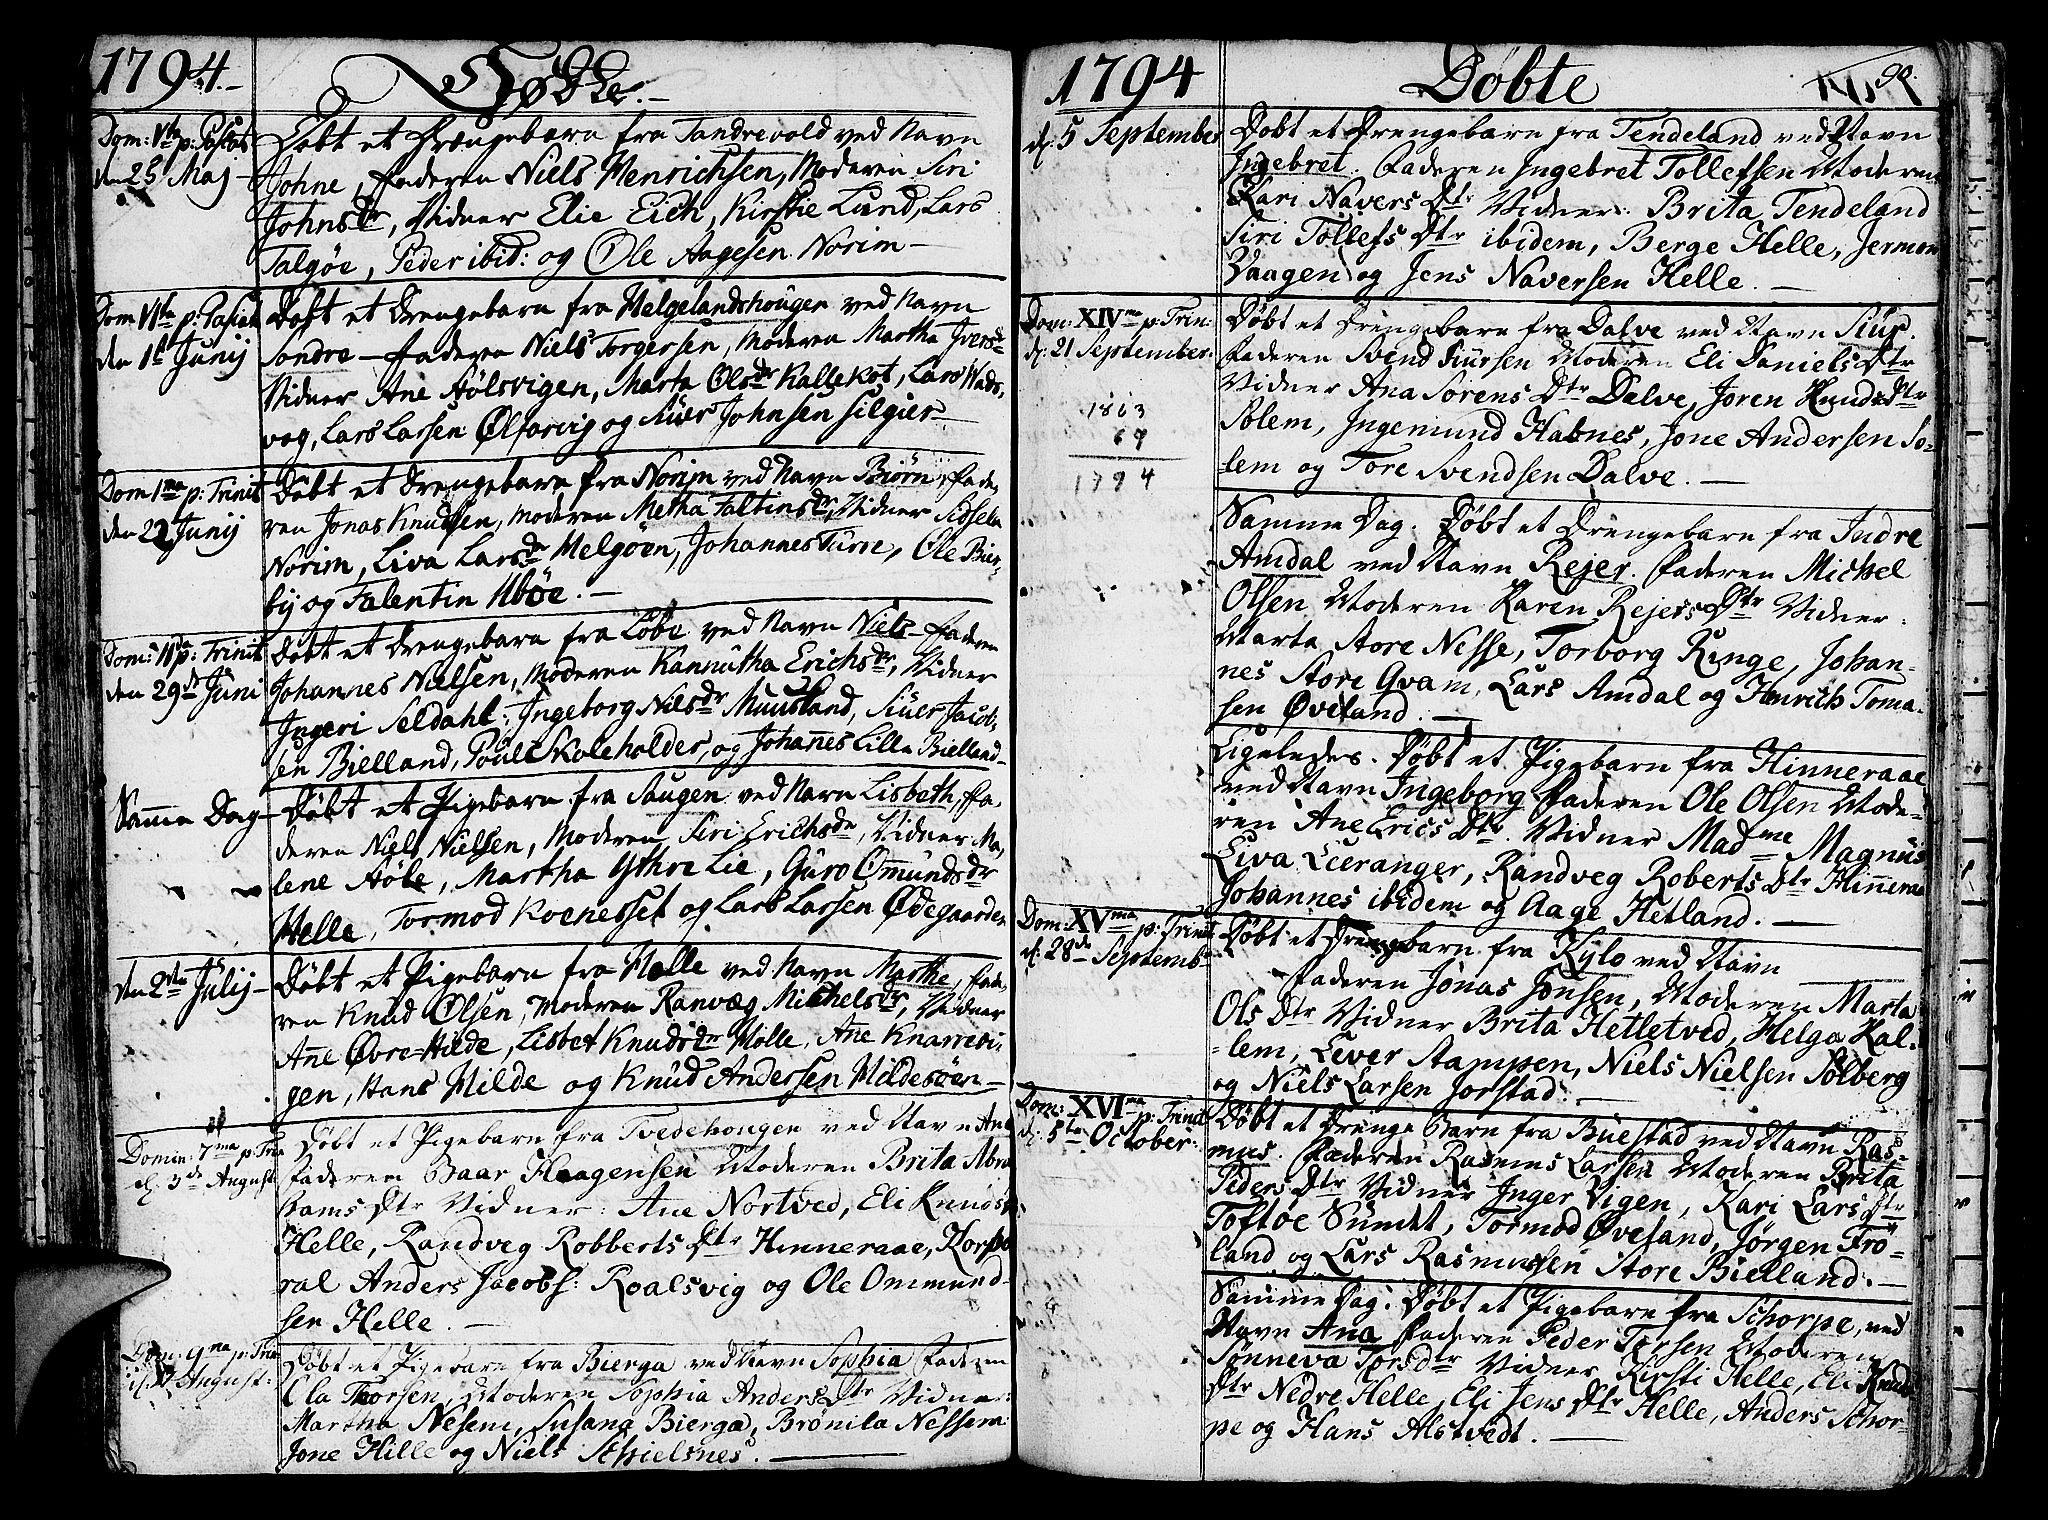 1794.-
Døbte.-
Dom: Vta p: Pascat
den 25 Maj -
Døbt et Drengebarn fra Tandrevold ved Navn
Johne, Faderen Niels Henrichsen, Moderen Siri
Johnsdr, Vidner Elie Eich, Kirstie Lund, Lars
Talgøe, Peder ibid: og Ole Aagesen Norim -
Dom VIta p: Pasch
den 1st Junij
Døbt et Drengebarn fra Helgelandshougen ved Navn
Sondre - Faderen Niels Torgersen, Moderen Martha Iversdr
Vidner Ane Aølsvigen, Marta Olsdr Kallekot, Lars Wads,
vog, Lars Larsen Ølfarvig og Siver Johnsen Silgier
Dom 1ma p: Trinit
den 22 Junij
Døbt et Drengebarn fra Norim ved Navn Biørn, Fade,
ren Jonas Knudsen, Moderen Metha Faltinsdr, Vidner Sidsela
Norim, Liva Larsdr Helgøen, Johannes Turre, Ole Bier,
by og Falentin Ubøe. -
Dom: IIda p: Trinit
den 29de Juni
Døbt et Drengebarn fra Løbe ved Navn Niels - Faderen
Johannes Nielsen, Moderen Kannutha Erichsdr, Vidner
Ingeri Seldahl, Ingeborg Nilsdr Muusland, Siver Jacob,
sen Bielland, Poul Skoleholder, og Johannes Lille Bielland -
Samme Dag -
Døbt et Pigebarn fra Saugen ved Navn Lisbeth, Fa,
deren Niels Nielsen, Moderen Siri Erichsdr, Vidner Ma,
lene Aøbe, Martha Ythre Lie, Guro Omundsdr
Helle, Tormod Koenesset og Lars Larsen Ødegaarden
den 2den Julij -
Døbt et Pigebarn fra Molle ved Navn Marthe, Fade,
ren Knud Olsen, Moderen Ranvæg Michelsdr, Vidner
Ane Øvre=Hilde, Lisbet Knudsdr Molle, Ane Knarrevi,
gen, Hans Milde og Knud Andersen Mildesøen -
Domin: 7ma p: Trin
d: 3de August
Døbt et Pigebarn fra Tvedehougen ved Navn Ana
Faderen Baar Haagensen Moderen Brita Abra
hams Dtr Vidner: Ane Nortved, Eli Knuds Dtr
Helle, Randveg Robberts Dtr Hinneraae, Korpo
ral Anders Jacobs: Roalsvig og Ole Ommund-
sen Helle. -
Dom: 9ma p: Trin
d: 17 August:
Døbt et Pigebarn fra Bierga ved Navn Sophia Faderen
Ola Thorsen, Moderen Sophia Anders Dtr Vidner:
Martha Nesem, Susana Bierga, Brønila Nessem
Jone Hille og Niels Schielsnes. -
1794
Døbte
98.
d: 5 September
Døbt et Drengebarn fra Tendeland ved Navn
Ingebret. Faderen Ingebret Tollefsen Moderen
Kari Navers Dtr Vidner: Brita Tendeland
Siri Tollefs Dtr ibidem, Berge Helle, Jermon
Vaagen og Jens Naversen Helle. -
Dom: XIVma p: Trin.
d: 21 September.
1863
69
1794
Døbt et Drengebarn fra Dalve ved Navn Siur.
Faderen Svend Siursen Moderen Eli Daniels Dtr
Vidner Ana Sørens Dtr Dalve, Joren Knuds Dtr
Solem, Ingemund Habnes, Jone Andersen So-
-lem og Tore Svendsen Dalve. -
Samme Dag. Døbt et Drengebarn fra Indre
Amdal ved Navn Rejer. Faderen Michel
Olsen Moderen Karen Rejers Dtr Vidner:
Marta Store Nesse, Torborg Ringe, Johan-
nes Store Gvam, Lars Amdal og Henrich Toma-
sen Øveland. -
Ligeledes. Døbt et Pigebarn fra Hinneraae
ved Navn Ingeborg Faderen Ole Olsen Mode-
ren Ane Erics Dtr. Vidner Madme Magnus
Liva Lieranger, Randveg Roberts Dtr Hinnerae
Johannes ibidem og Aage Hetland. -
Dom: XVma p: Trinit
d: 28de Septemb
Døbt et Drengebarn fra Kylo ved Navn
Faderen Jonas Jonsen, Moderen Marta
Ols Dtr Vidner Brita Hetletved, Helga Kal-
-lem, Lever Stampen, Niels Nielsen Solberg
og Niels Larsen Jorstad. -
Dom: XVIma p: Trinit
d: 5te October:
Døbt et Drenge Barn fra Buestad ved Navn Ras-
mus. Faderen Rasmus Larsen Moderen Brita
Peders Dtr Vidner Inger Vigen, Kari Lars Dtr
Toftøe Sundet, Tormod Øveland, Jørgen Frö-
land og Lars Rasmussen Store Bielland. -
Samme Dag. Døbt et Pigebarn fra Schorpe, ved
Navn Ana Faderen Peder Torsen Moderen
Sønneva Torsdtr Vidner Kirsti Helle, Eli Knuds
Dtr Nedre Helle, Eli Jens Dtr Helle, Anders Schor-
pe og Hans Alstvedt. -